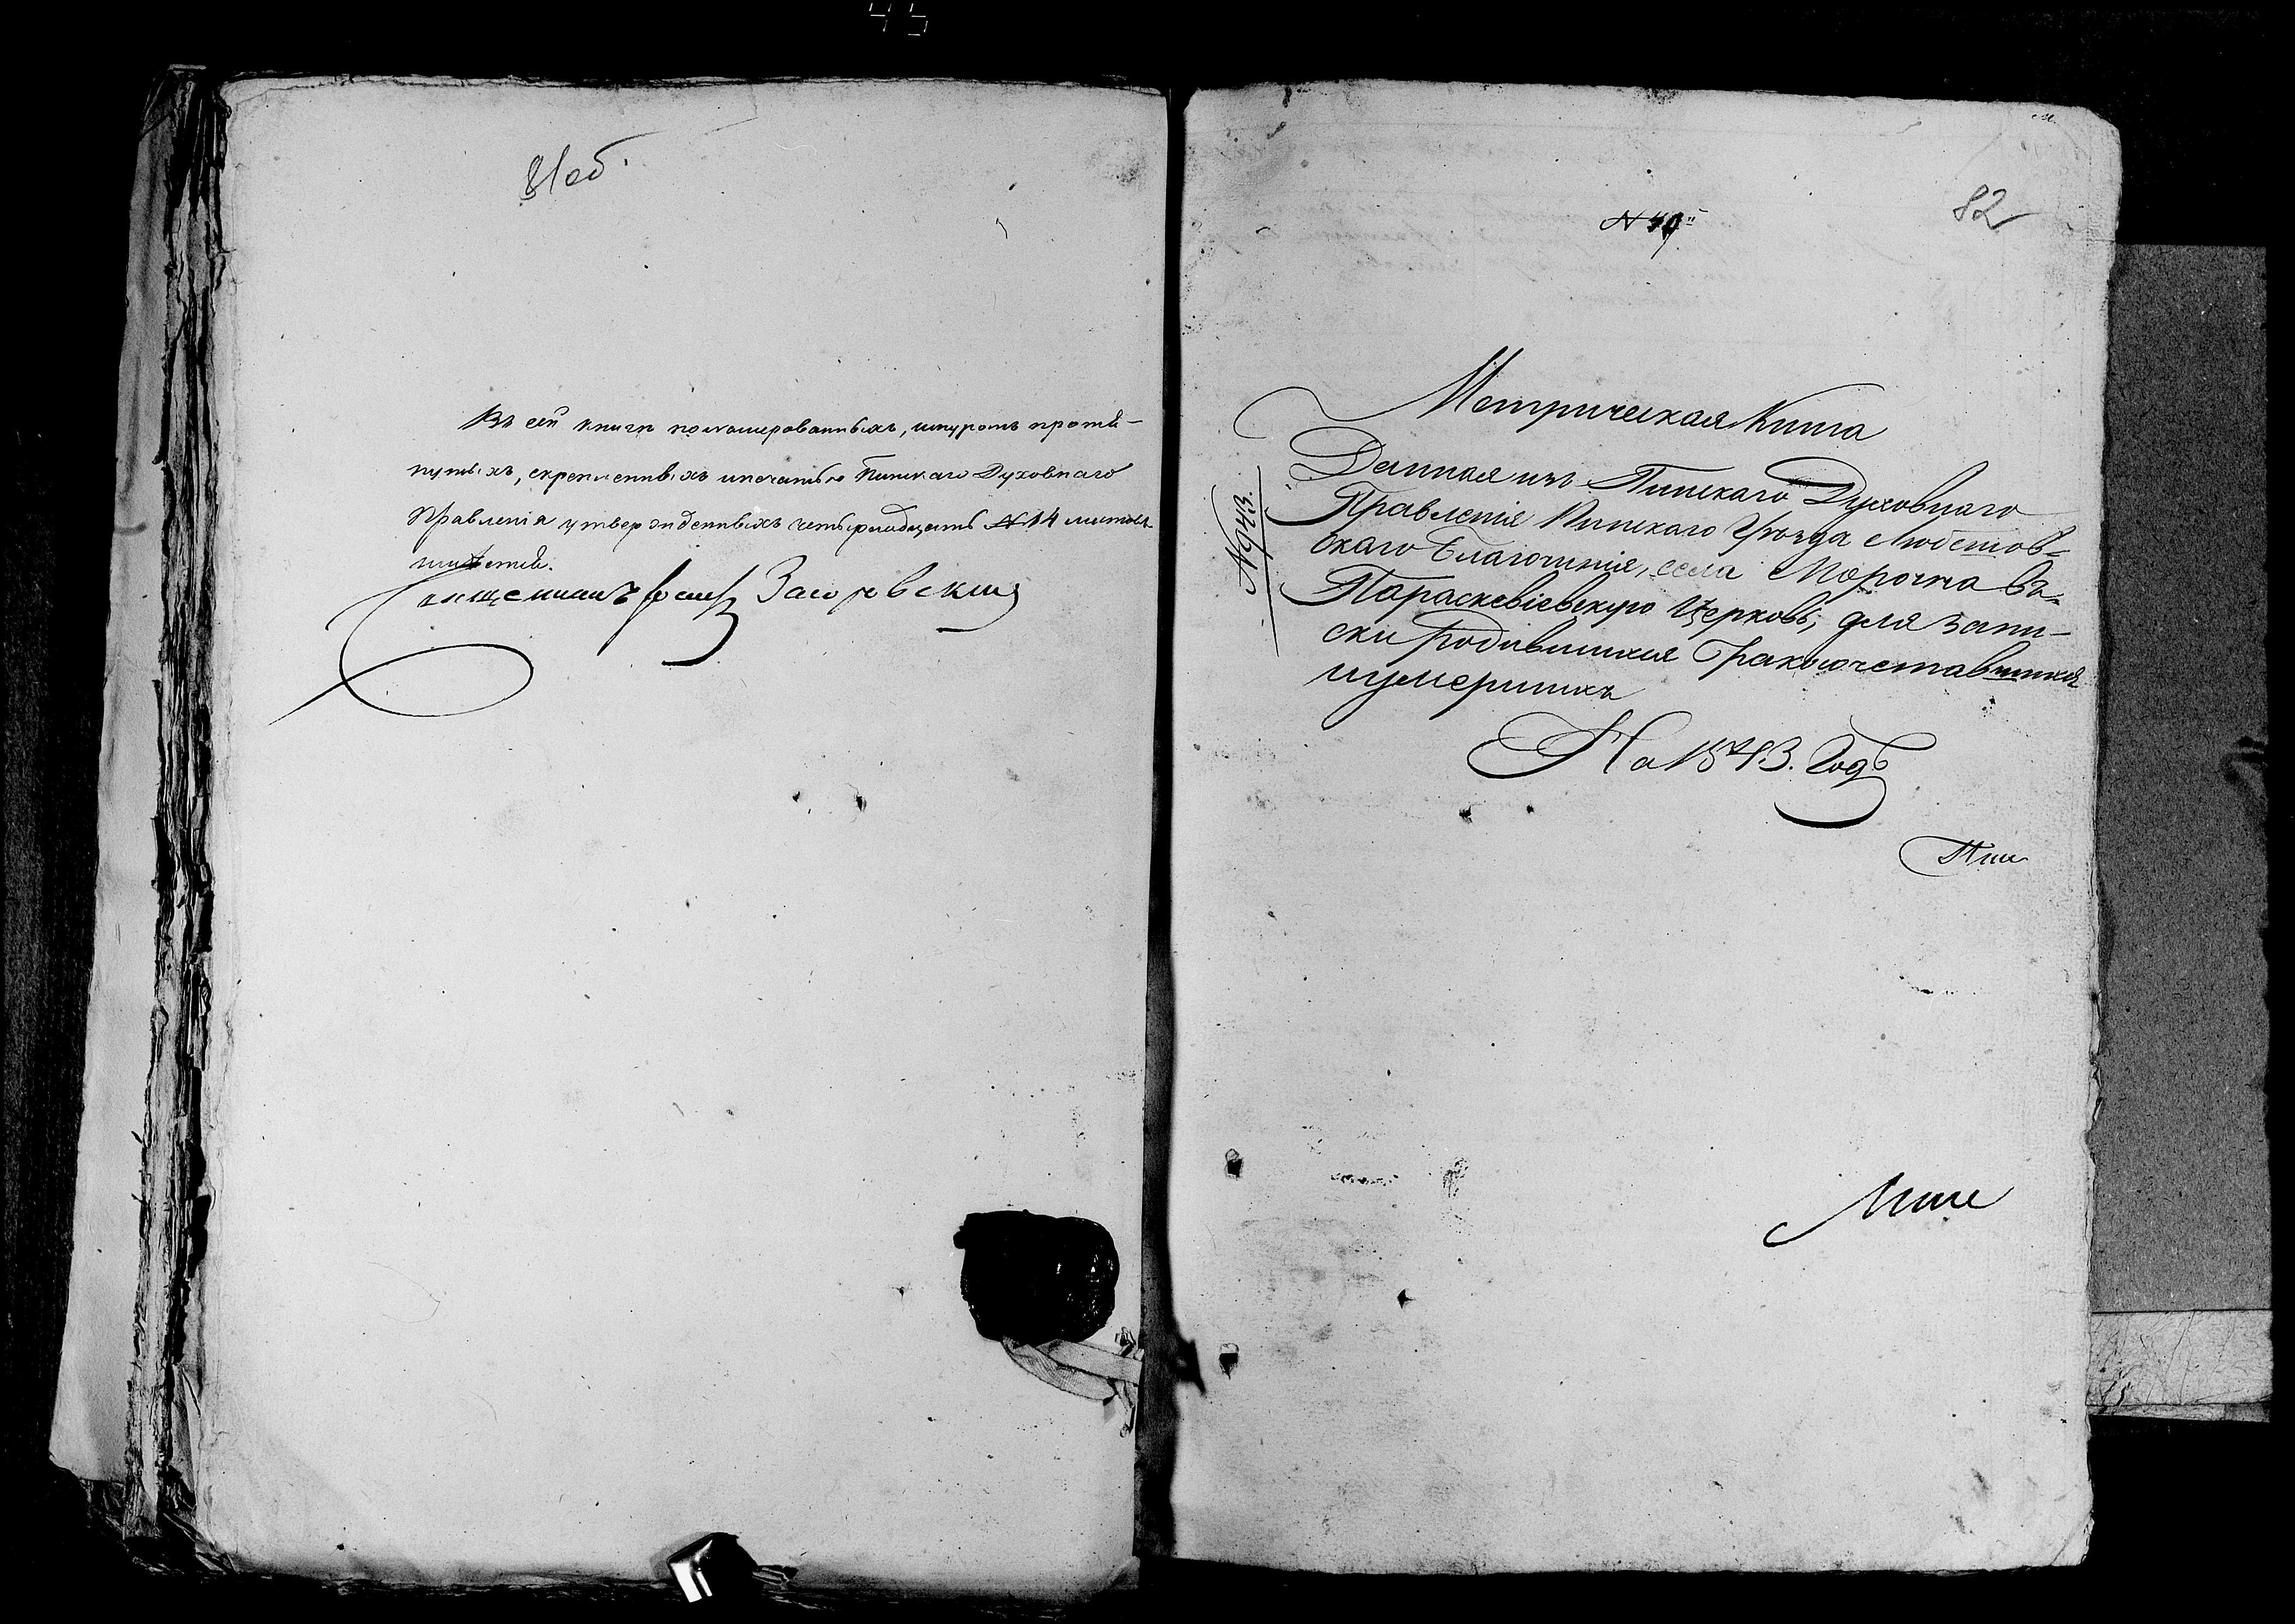 45
81 об.
Въ сей книге пономерованныхъ, шнуромъ протя-
нутыхъ, скрепленныхъ и печатью Пинскаго Духовнаго
Правленія утвержденныхъ четырнадцать № 14 листовъ
Священникъ Заторовскій
82
Метрическая Книга
Данная изъ Пинскаго Духовнаго
Правленія Пинскаго Уѣзда Любешов-
скаго Благочинія, села Морочна въ
Параскевіевскую Церковь, для запи-
ски родившихся бракосочетавшихся
и умершихъ
На 1843. Годъ
Пин